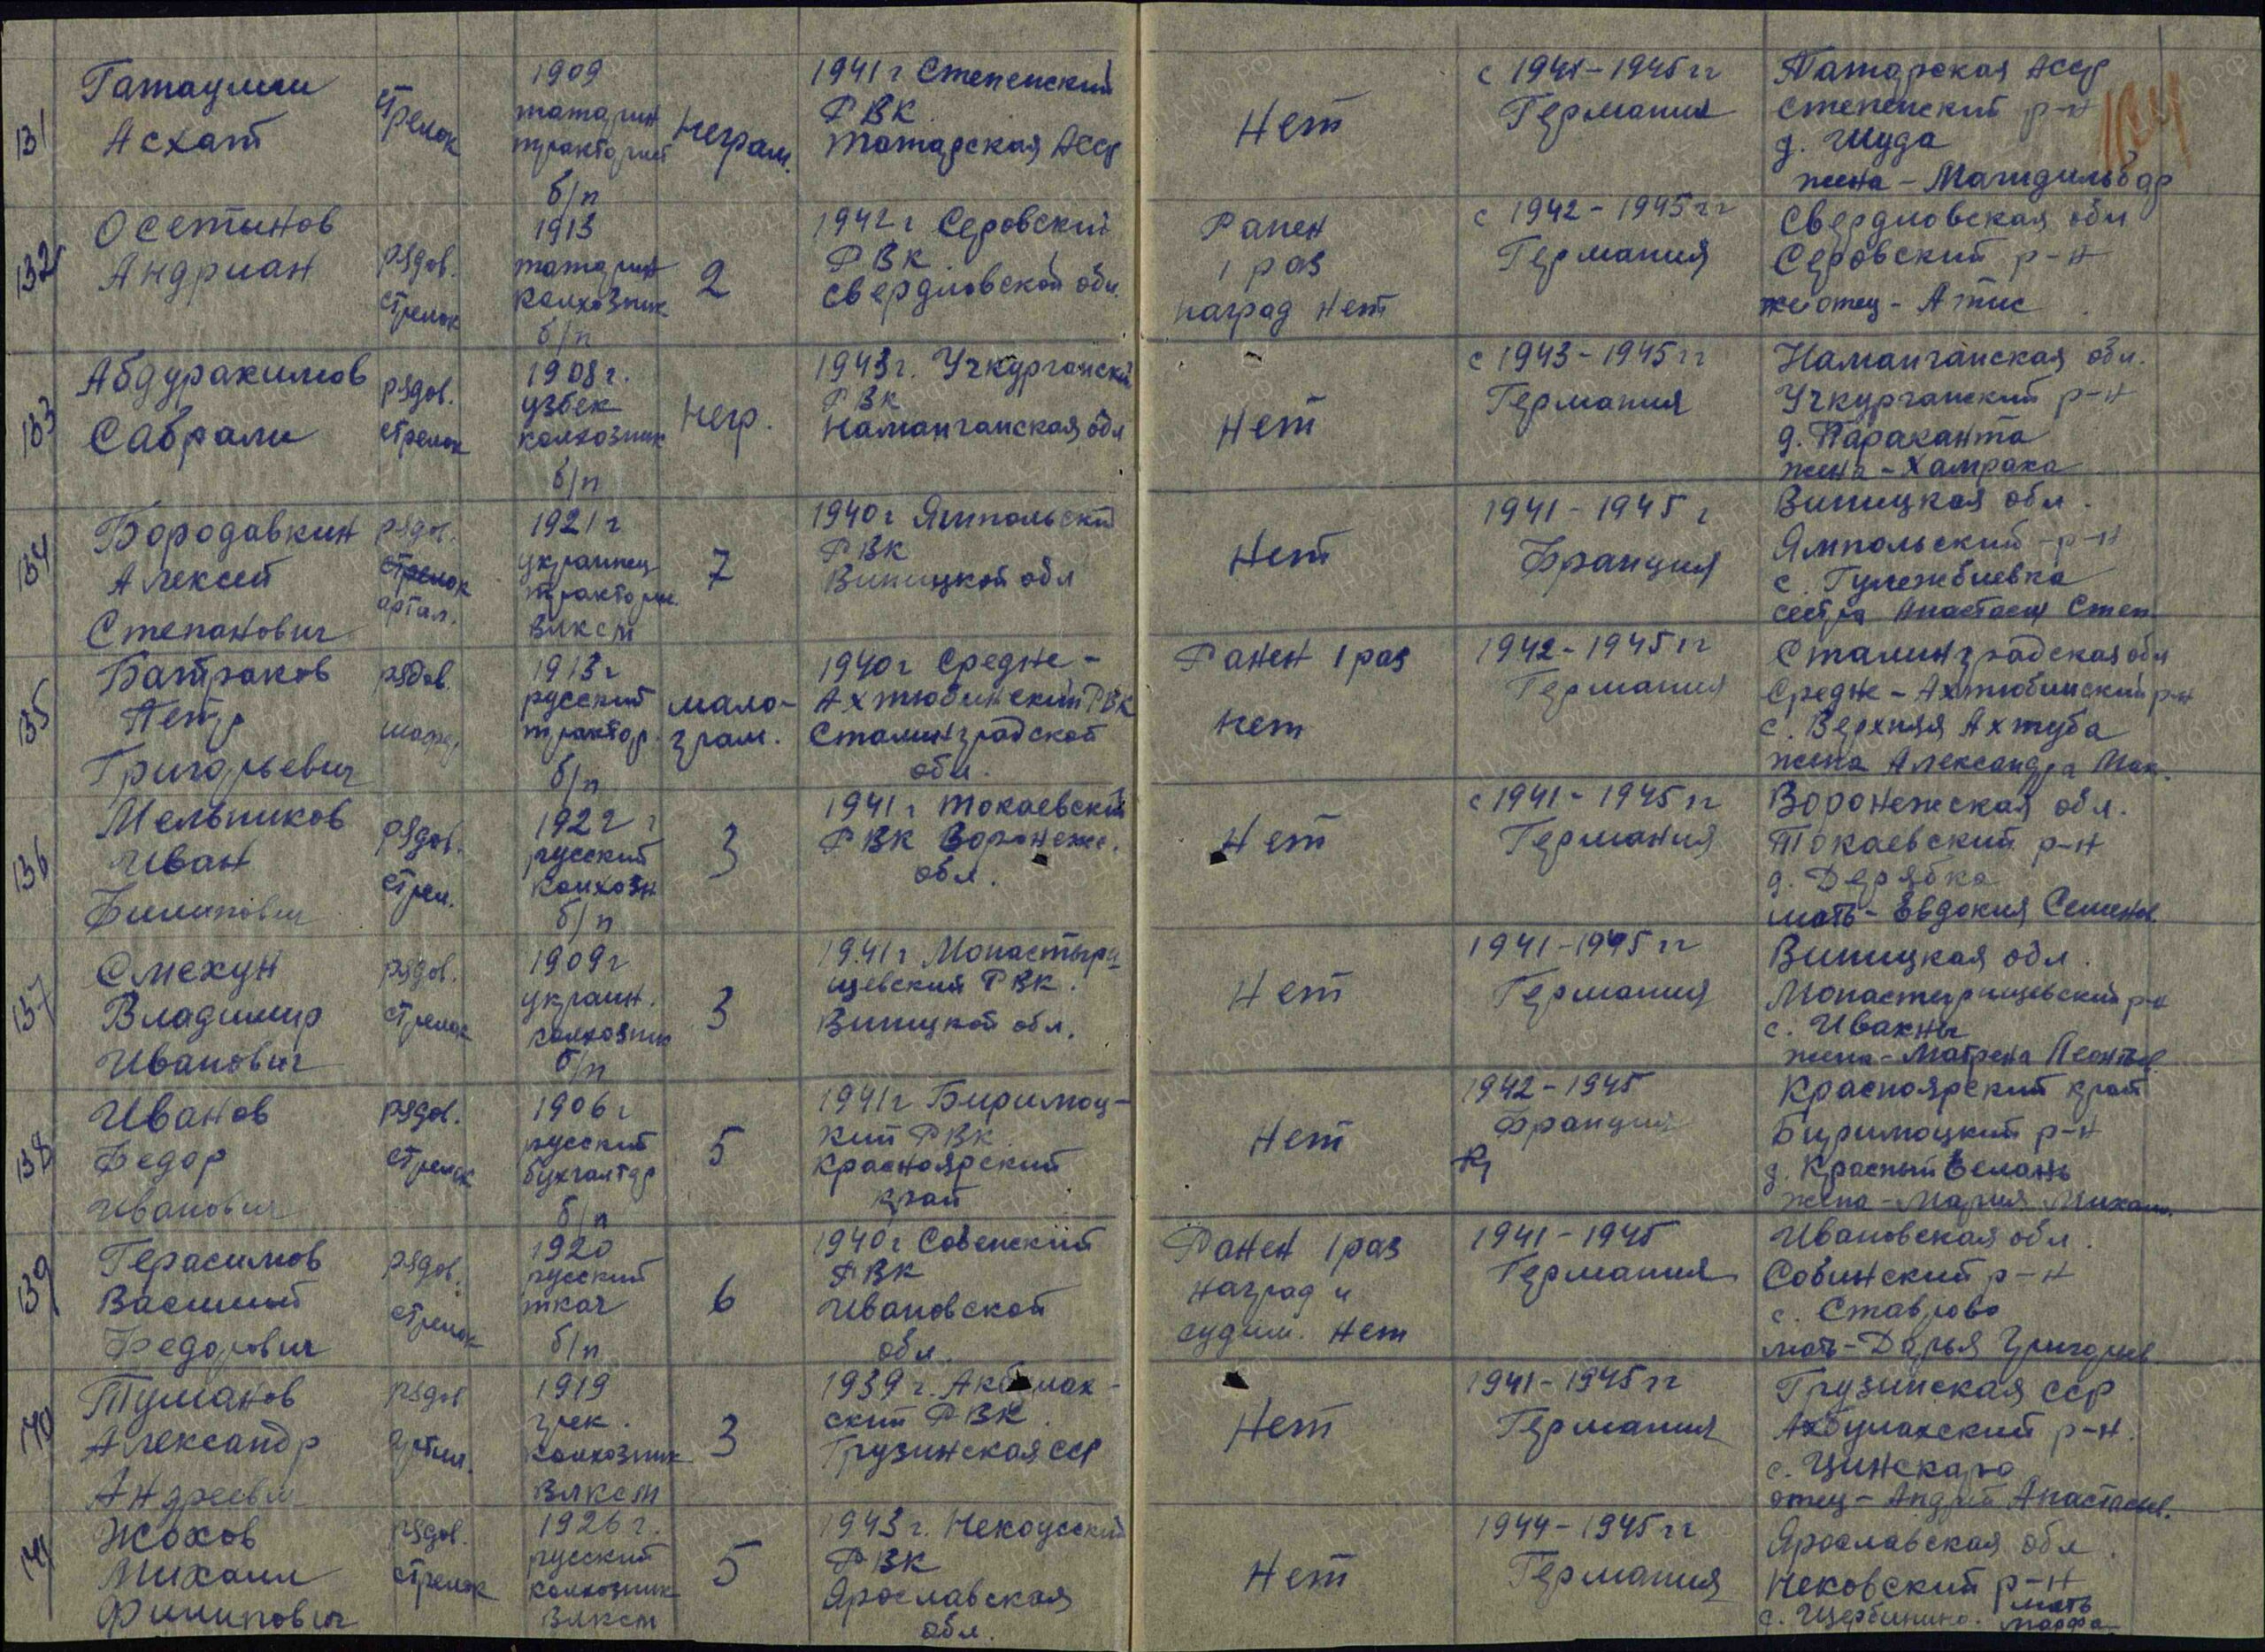 131
Гатаулин
Асхат
стрелок
1909
татарин
тракторист
б/п
Неграм.
1941 г Степенский
РВК
Татарская АССР
Нет
с 1941-1945 гг
Германия
Татарская АССР
Степенский р-н
д. Шуда
жена -
132
Осетинов
Андриан
рядов.
стрелок
1913
татарин
колхозник
б/п
2
1942 г Серовский
РВК
Свердловской обл.
Ранен
1 раз
наград нет
с 1942-1945 гг
Германия
Свердловская обл
Серовский р-н
отец - Атис
133
Абдурахимов
Сабрали
рядов.
стрелок
1908 г.
узбек
колхозник
б/п
Негр.
1943 г. Учкурганский
РВК
Наманганская обл
Нет
с 1943-1945 гг
Германия
Наманганская обл.
Учкурганский р-н
д. Параканта
жена - Хамрака
134
Бородавкин
Алексей
Степанович
рядов.
стрелок
артил.
1921 г
украинец
тракторис.
ВЛКСМ
7
1940 г Ямпольский
РВК
Виницкой обл
Нет
1941-1945 г
Франция
Виницкая обл.
Ямпольский р-н
с.
сестра Анастасия Степ.
135
Батраков
Петр
Григорьевич
рядов.
шофер
1913 г
русский
трактор.
б/п
мало-
грам.
1940 г Средне-
Ахтюбинский РВК
Сталинградской
обл.
Ранен 1 раз
нет
1942-1945 гг
Германия
Сталинградская обл
Средне-Ахтюбинский р-н
с. Верхняя Ахтуба
жена Александра Мак.
136
Мельников
Иван
Филипович
рядов.
стрел.
1922 г
русский
колхозн
б/п
3
1941 г Токаевский
РВК Воронежс.
обл.
Нет
с 1941-1945 гг
Германия
Воронежская обл.
Токаевский р-н
д. Дерябка
мать - Евдокия Семенов.
137
Смехун
Владимир
Иванович
рядов.
стрелок
1909 г
украин.
колхозник
б/п
3
1941 г Монастыри-
щевский РВК.
Виницкой обл.
Нет
1941-1945 гг
Германия
Виницкая обл.
Монастырищевский р-н
с. Ивахны
жена - Матрена Леонтьев.
138
Иванов
Федор
Иванович
рядов.
стрелок
1906 г
русский
бухгалтер
б/п
5
1941 г Биримоц-
кий РВК.
Красноярский
край
Нет
1942-1945
Франция
Красноярский край
Биримоцкий р-н
д. Красный
жена - Мария Михайл.
139
Герасимов
Василий
Федорович
рядов.
стрелок
1920
русский
ткач
б/п
6
1940 г Совенский
РВК
Ивановской
обл.
Ранен 1 раз
наград и
судим. нет
1941-1945
Германия
Ивановская обл.
Совинский р-н
с. Ставрово
мать - Дарья Григорьев.
140
Туманов
Александр
Андреевич
рядов
артил.
1919
грек.
колхозник
ВЛКСМ
3
1939 г. Акбулах-
ский РВК.
Грузинская ССР
Нет
1941-1945 гг
Германия
Грузинская ССР
Акбулахский р-н.
с. Цинскаро
отец - Андрей Анастасьев.
141
Жохов
Михаил
Филипович
рядов.
стрелок
1926 г.
русский
колхозник
ВЛКСМ
5
1943 г. Некоусский
РВК
Ярославская
обл.
Нет
1944-1945 гг
Германия
Ярославская обл.
Нековский р-н
с. Щербинино. мать
Марфа